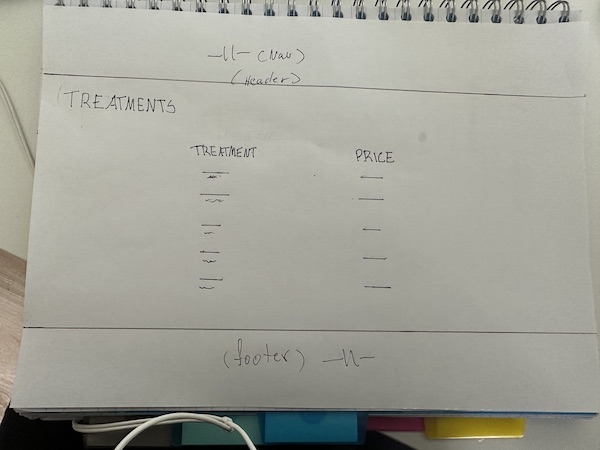 -||- (Nav)
(Header)
TREATMENTS
TREATMENT PRICE
(footer) -||-